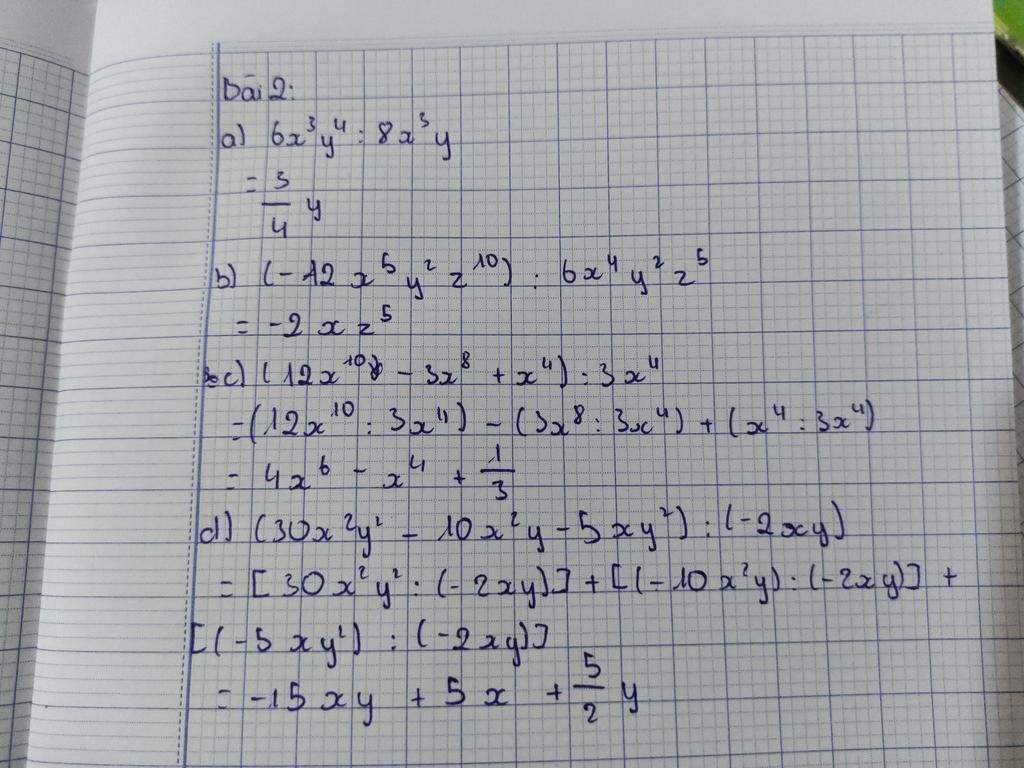 Bài 2:
a) 6x³y⁴ : 8x³y
= 3/4 y
b) (-12x⁵y²z¹⁰) : 6x⁴y²z⁵
= -2xz⁵
c) (12x¹⁰ - 3x⁸ + x⁴) : 3x⁴
= (12x¹⁰ : 3x⁴) - (3x⁸ : 3x⁴) + (x⁴ : 3x⁴)
= 4x⁶ - x⁴ + 1/3
d) (30x²y² - 10x²y - 5xy²) : (-2xy)
= [30x²y² : (-2xy)] + [(-10x²y) : (-2xy)] +
[(-5xy²) : (-2xy)]
= -15xy + 5x + 5/2 y